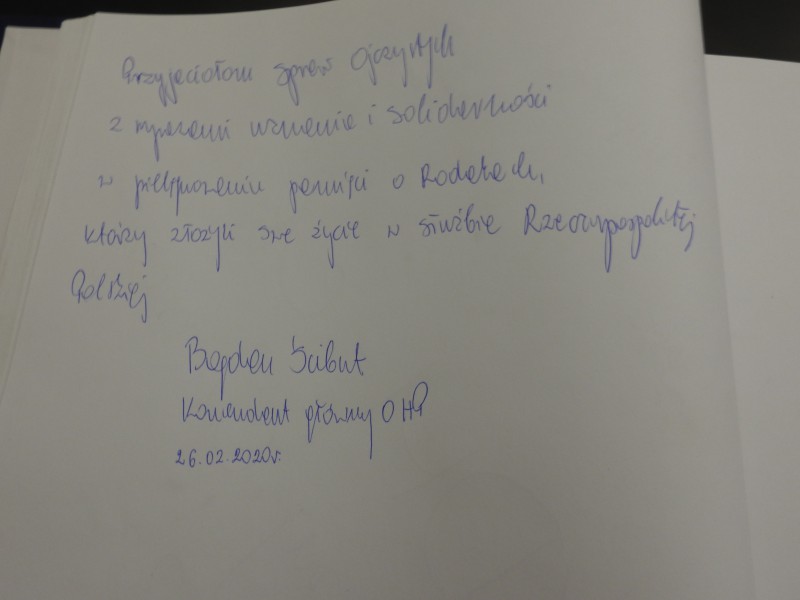 Przyjaciołom spraw Ojczystych
z wyrazami uznania i solidarności
w pielęgnowaniu pamięci o Rodakach,
którzy złożyli swe życie w służbie Rzeczypospolitej
Polskiej
Bogdan Ścibut
Komendant główny OHP
26.02.2020r.